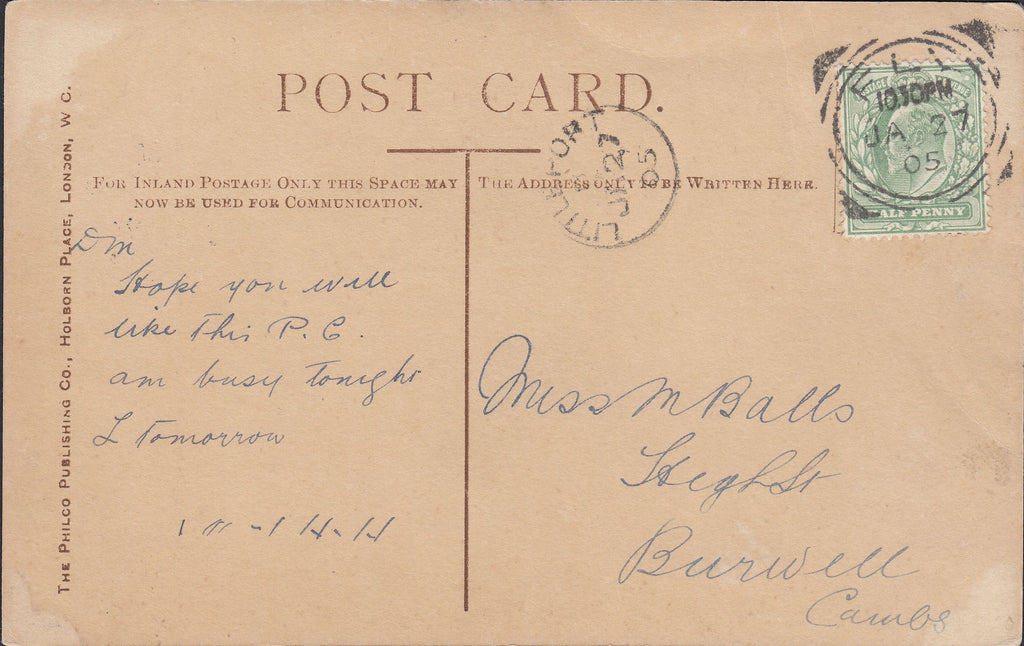 POST CARD.
FOR INLAND POSTAGE ONLY THIS SPACE MAY
NOW BE USED FOR COMMUNICATION.
THE ADDRESS ONLY TO BE WRITTEN HERE.
THE PHILCO PUBLISHING CO., HOLBORN PLACE, LONDON, W. C.
LITTLEPORT
JA 27
05
10 30PM
JA 27
05
HALF PENNY
D M
Hope you will
like this P. C.
am busy tonight
L tomorrow
Miss M Balls
High St
Burwell
Cambs